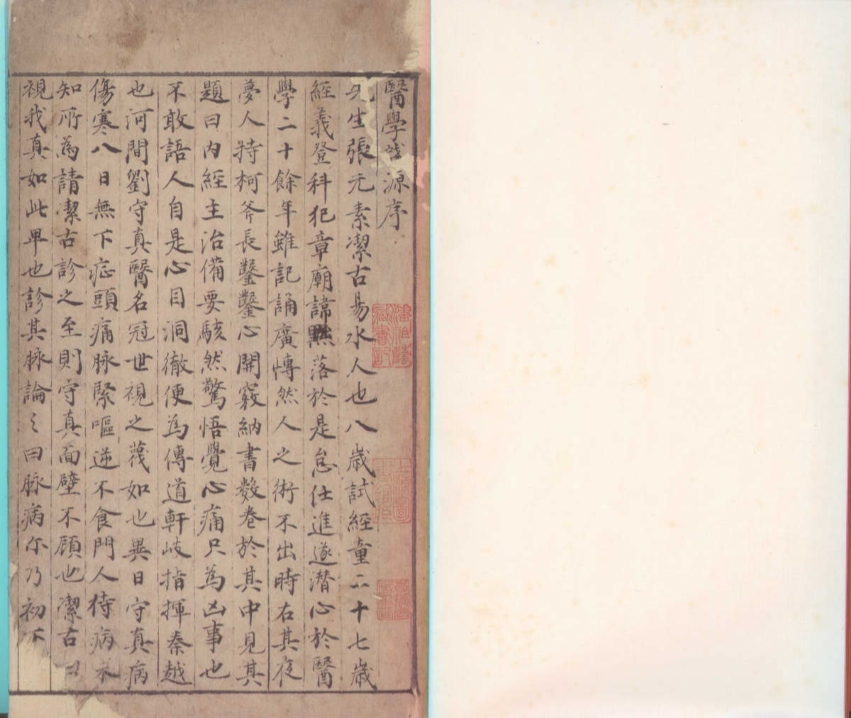 醫學啓源序
先生張元素潔古易水人也八歲試經童二十七歲
經義登科犯章廟諱黜落於是怠仕進遂潛心於醫
學二十餘年雖記誦廣愽然人之術不出時右其夜
夢人持柯斧長鑿鑿心開竅納書數卷於其中見其
題曰内經主治備要駭然驚悟覺心痛只為凶事也
不敢語人自是心目洞徹便為傳道軒岐指揮秦越
也河間劉守真醫名冠世視之蔑如也異日守真病
傷寒八日無下症頭痛脉緊嘔逆不食門人待病未
知所為請潔古診之至則守真面壁不顧也潔古曰
視我真如此卑也診其脉論之曰脉病尔乃初下